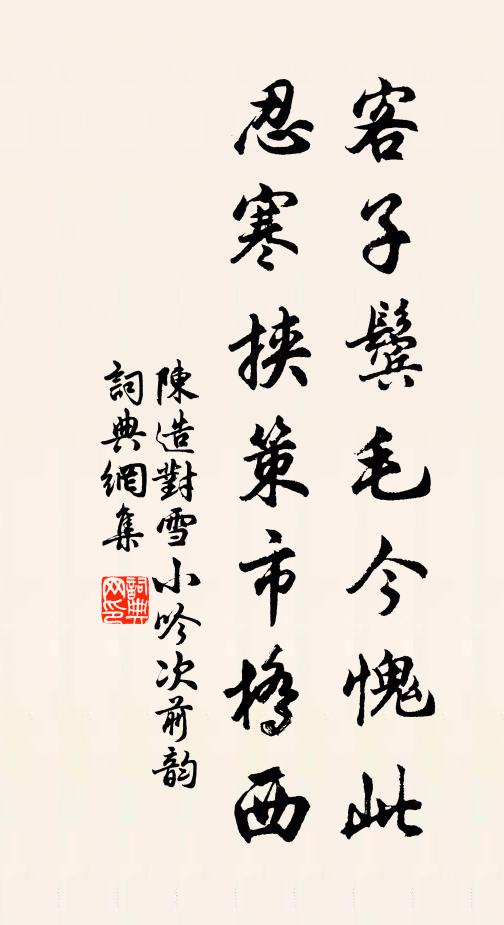 客子鬓毛今愧此
忍寒挟策市橋西
陳造對雪小吟次前韵
詞典網集
詞典
网印